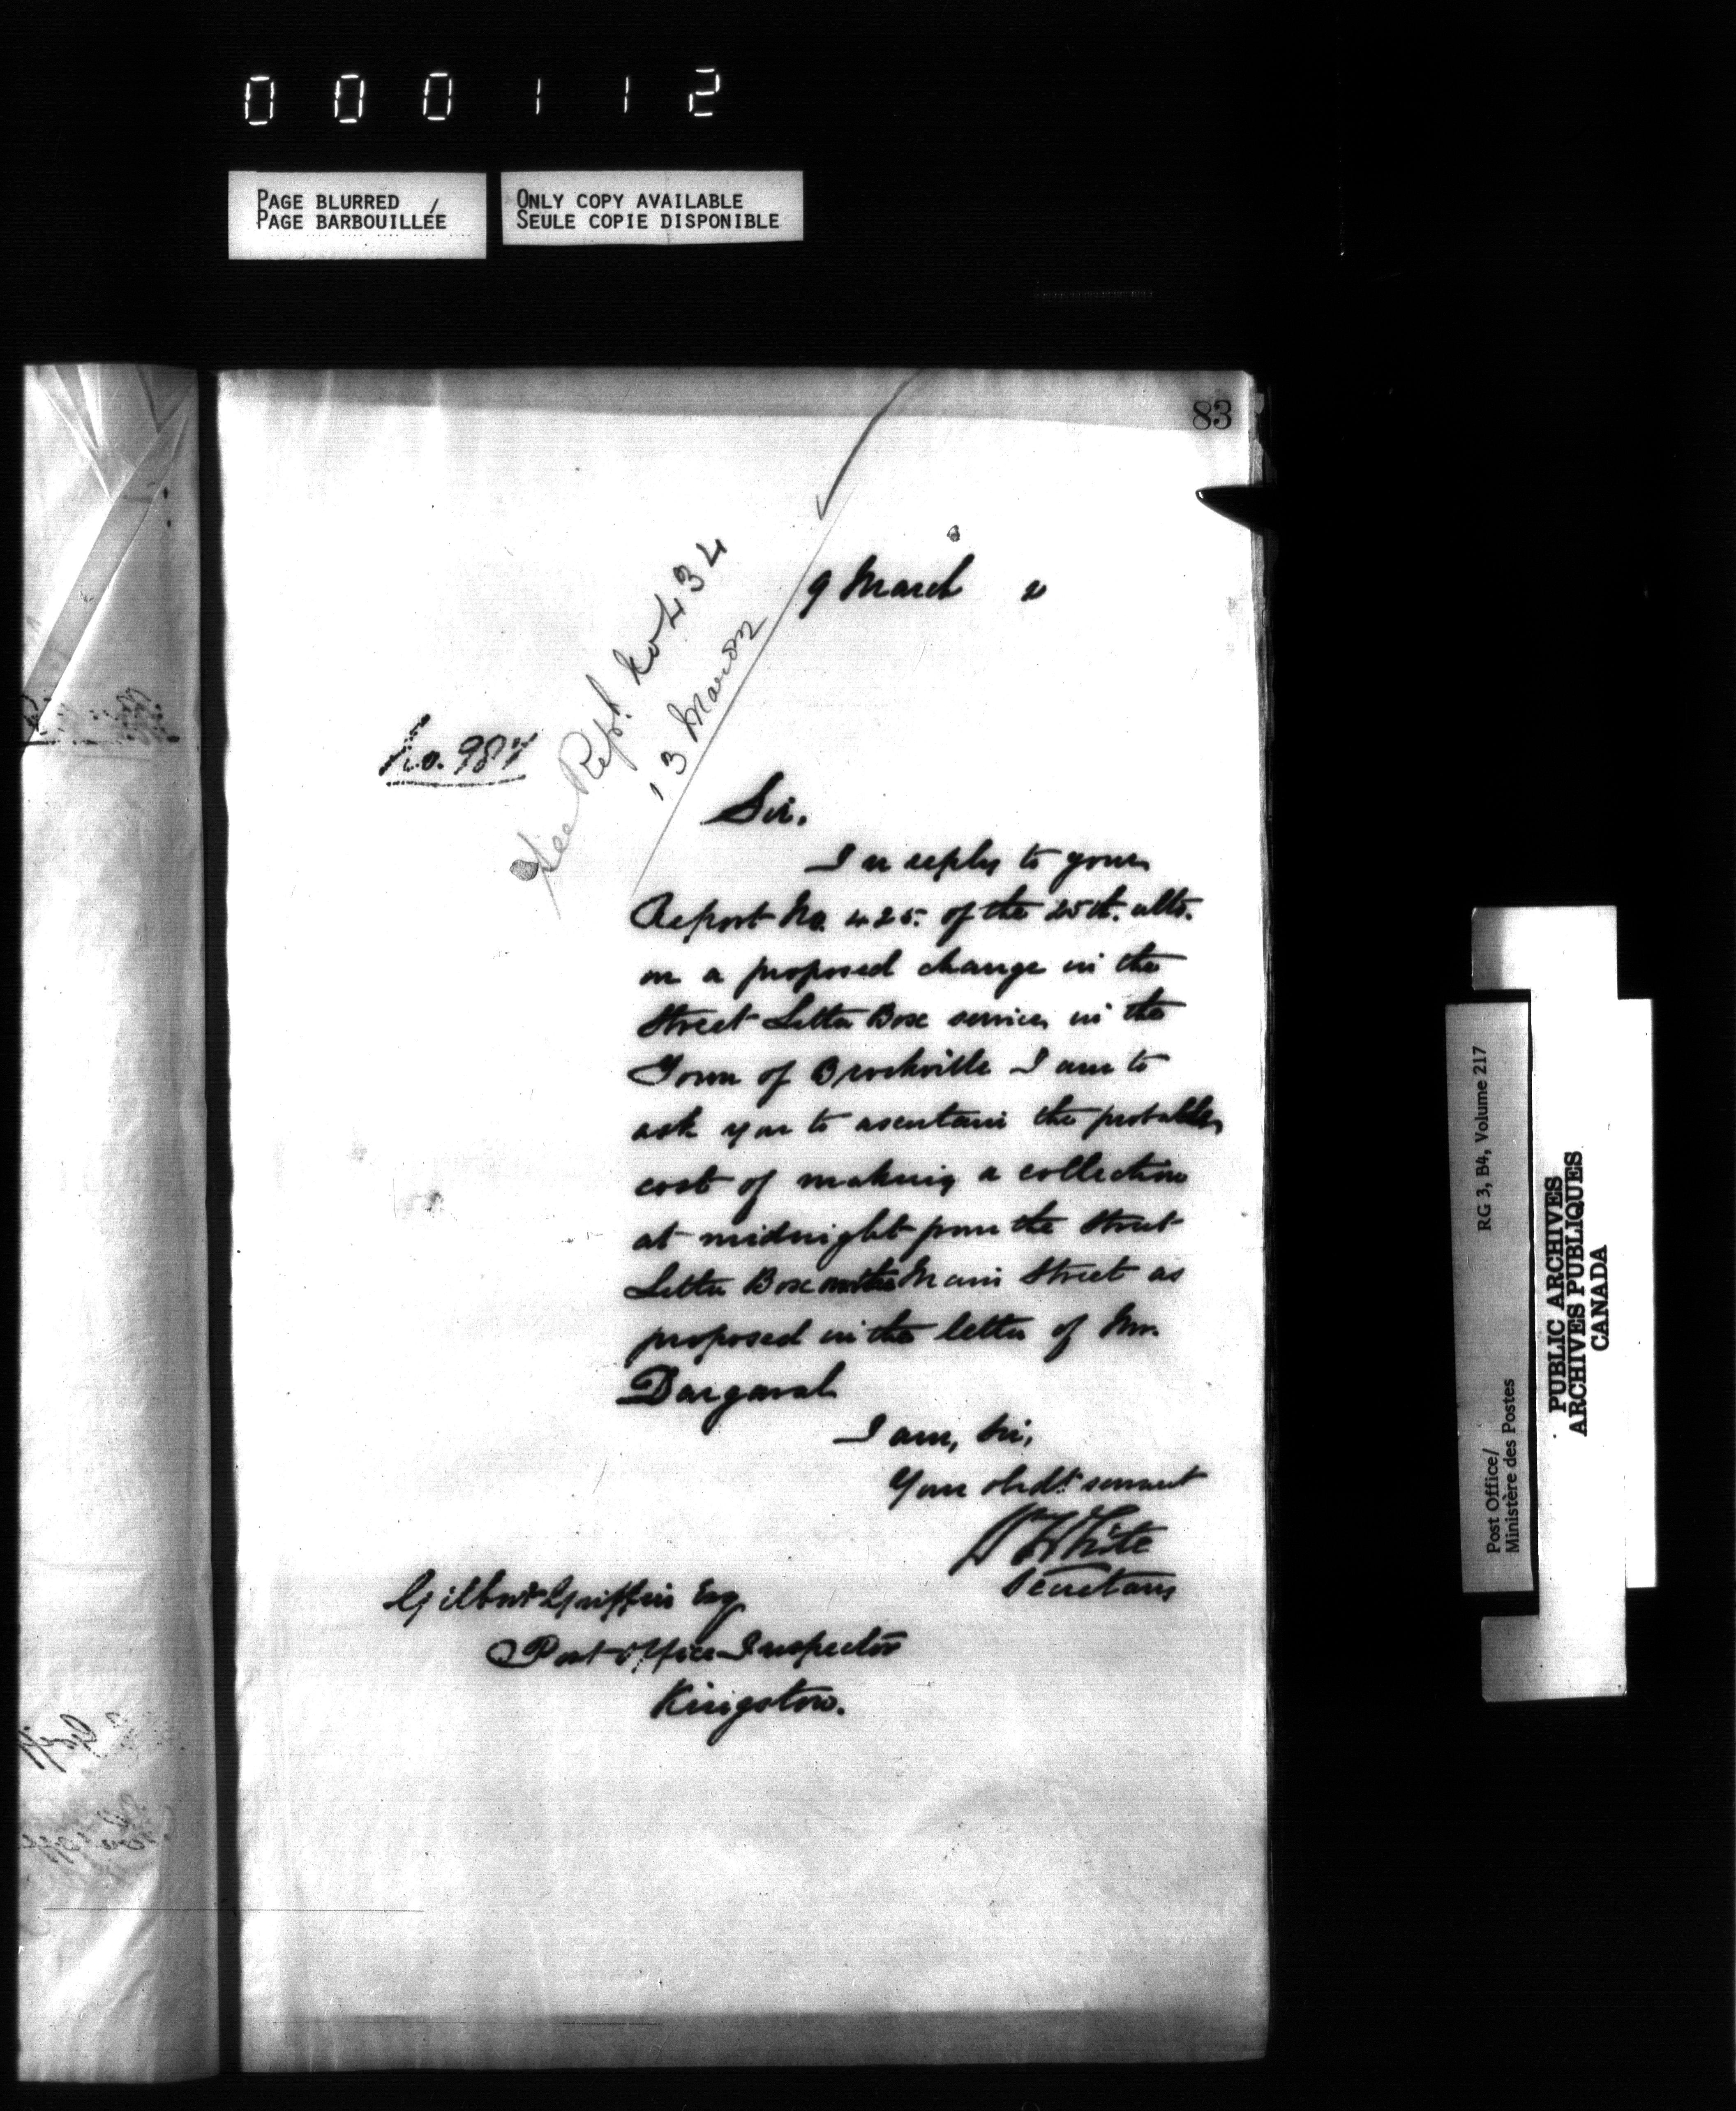 000112
PAGE BLURRED /
PAGE BARBOUILLÉE
ONLY COPY AVAILABLE
SEULE COPIE DISPONIBLE
83
9 March
See Rept. No 434
13 March
No. 987
Sir.
In reply to your
Report No. 425. of the 25th. ulto.
on a proposed change in the
Street Letter Box service in the
Town of Brockville I am to
ask you to ascertain the probable
cost of making a collection
at midnight from the Street
Letter Box Main Street as
proposed in the letter of Mr.
I am, Sir,
Your obdt. servant
White
Secretary
Gilbert Griffin Esq
Post Office Inspector
Kingston.
Post Office/
Ministère des Postes
RG 3, B4, Volume 217
PUBLIC ARCHIVES
ARCHIVES PUBLIQUES
CANADA